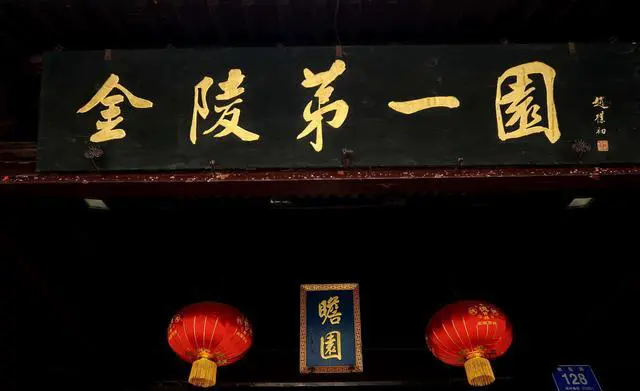 金陵第一園
趙樸初
瞻園
128